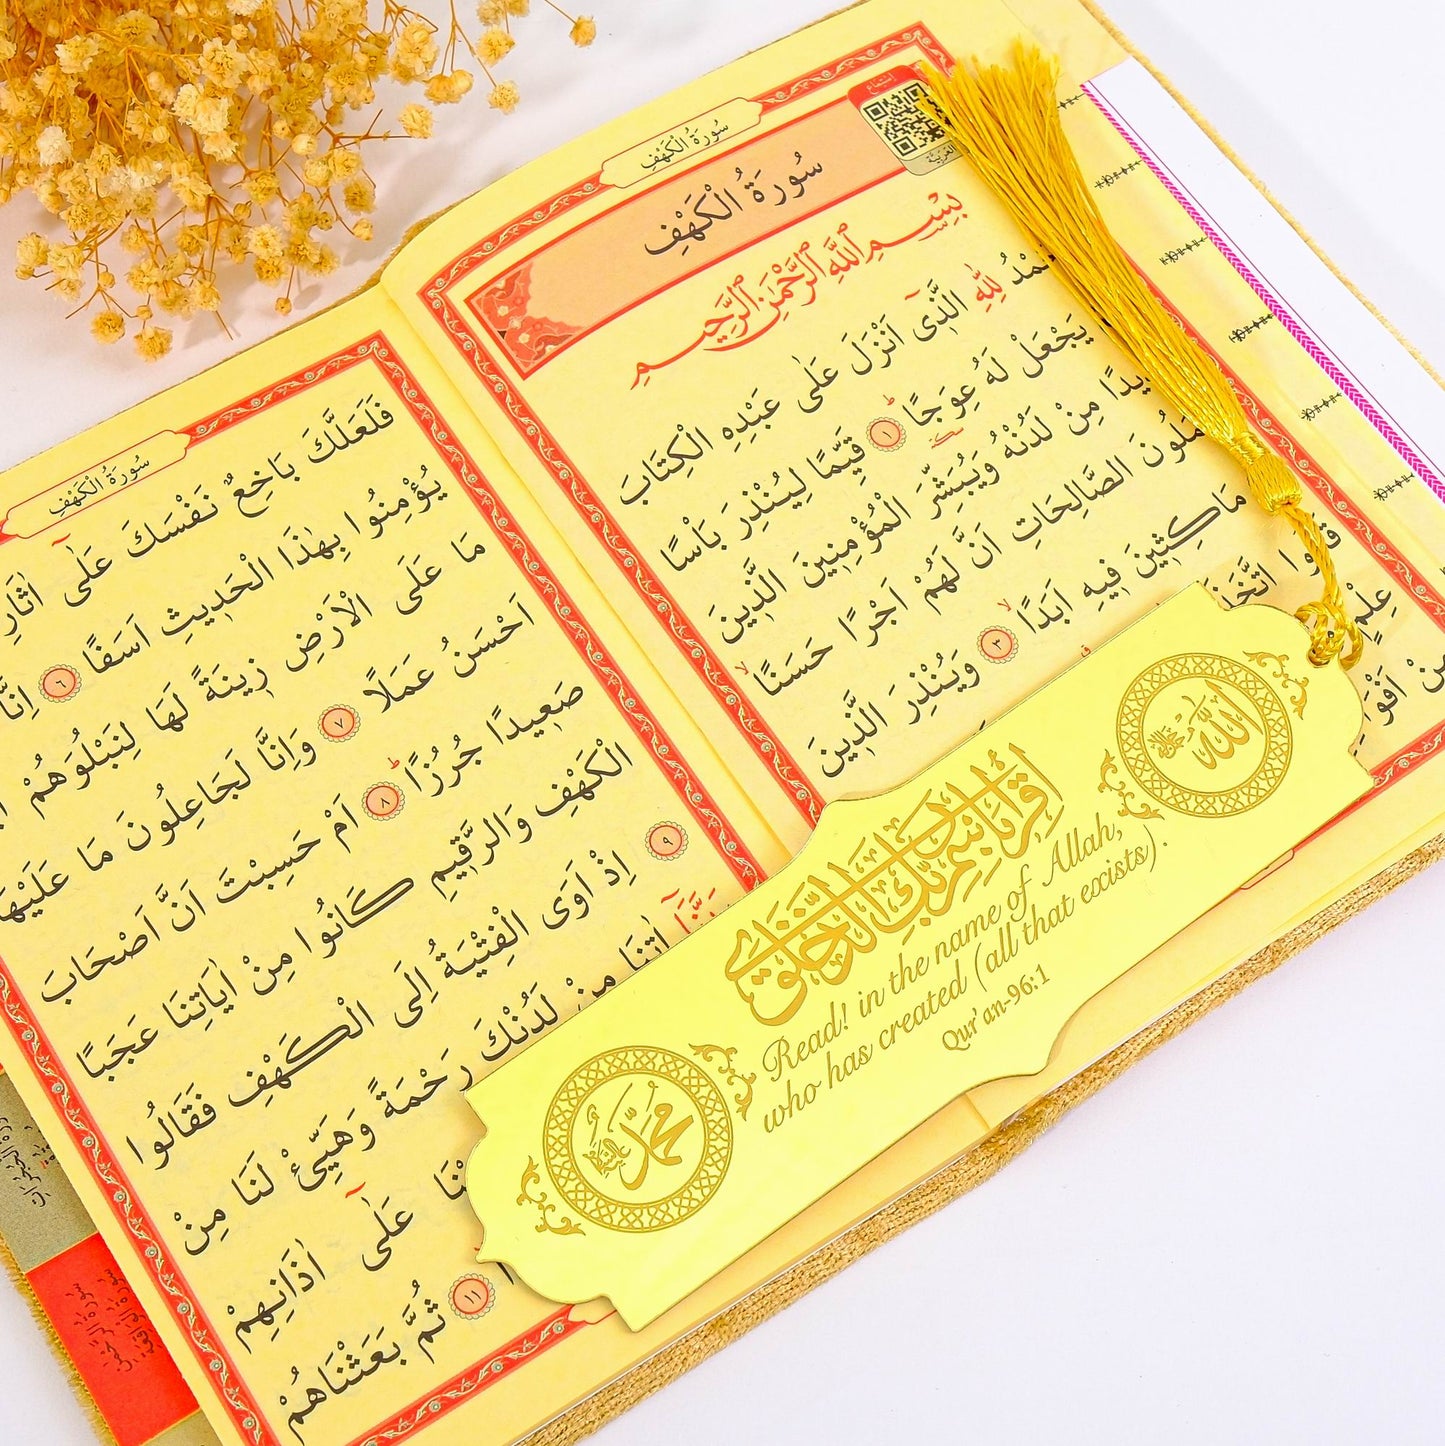 سُورَةُ الْكَهْفِ
سُورَةُ الْكَهْفِ
استماع
العربية
بِسْمِ اللّٰهِ الرَّحْمٰنِ الرَّحِيمِ
لِلّٰهِ الَّذٓى اَنْزَلَ عَلٰى عَبْدِهِ الْكِتَابَ
يَجْعَلْ لَهُ عِوَجًا ١ قَيِّمًا لِيُنْذِرَ بَاْسًا
مِنْ لَدُنْهُ وَيُبَشِّرَ الْمُؤْمِنِينَ الَّذِينَ
الصَّالِحَاتِ اَنَّ لَهُمْ اَجْرًا حَسَنًا
مَاكِثِينَ فِيهِ اَبَدًا ٣ وَيُنْذِرَ الَّذِينَ
قَالُوا اتَّخَذَ
عِلْمٍ
سُورَةُ الْكَهْفِ
فَلَعَلَّكَ بَاخِعٌ نَفْسَكَ عَلٰٓى اٰثَارِ
يُؤْمِنُوا بِهٰذَا الْحَدِيثِ اَسَفًا ٦ اِنَّا
مَا عَلَى الْاَرْضِ زِينَةً لَهَا لِنَبْلُوَهُمْ
اَحْسَنُ عَمَلًا ٧ وَاِنَّا لَجَاعِلُونَ مَا عَلَيْهَا
صَعِيدًا جُرُزًا ٨ اَمْ حَسِبْتَ اَنَّ اَصْحَابَ
الْكَهْفِ وَالرَّقِيمِ كَانُوا مِنْ اٰيَاتِنَا عَجَبًا
٩ اِذْ اَوَى الْفِتْيَةُ اِلَى الْكَهْفِ فَقَالُوا
رَبَّنَٓا اٰتِنَا مِنْ لَدُنْكَ رَحْمَةً وَهَيِّئْ لَنَا مِنْ
عَلٰٓى اٰذَانِهِمْ
١١ ثُمَّ بَعَثْنَاهُمْ
الله
اقرأ باسم ربك الذي خلق
Read! in the name of Allah,
who has created (all that exists).
Qur'an-96:1
محمد